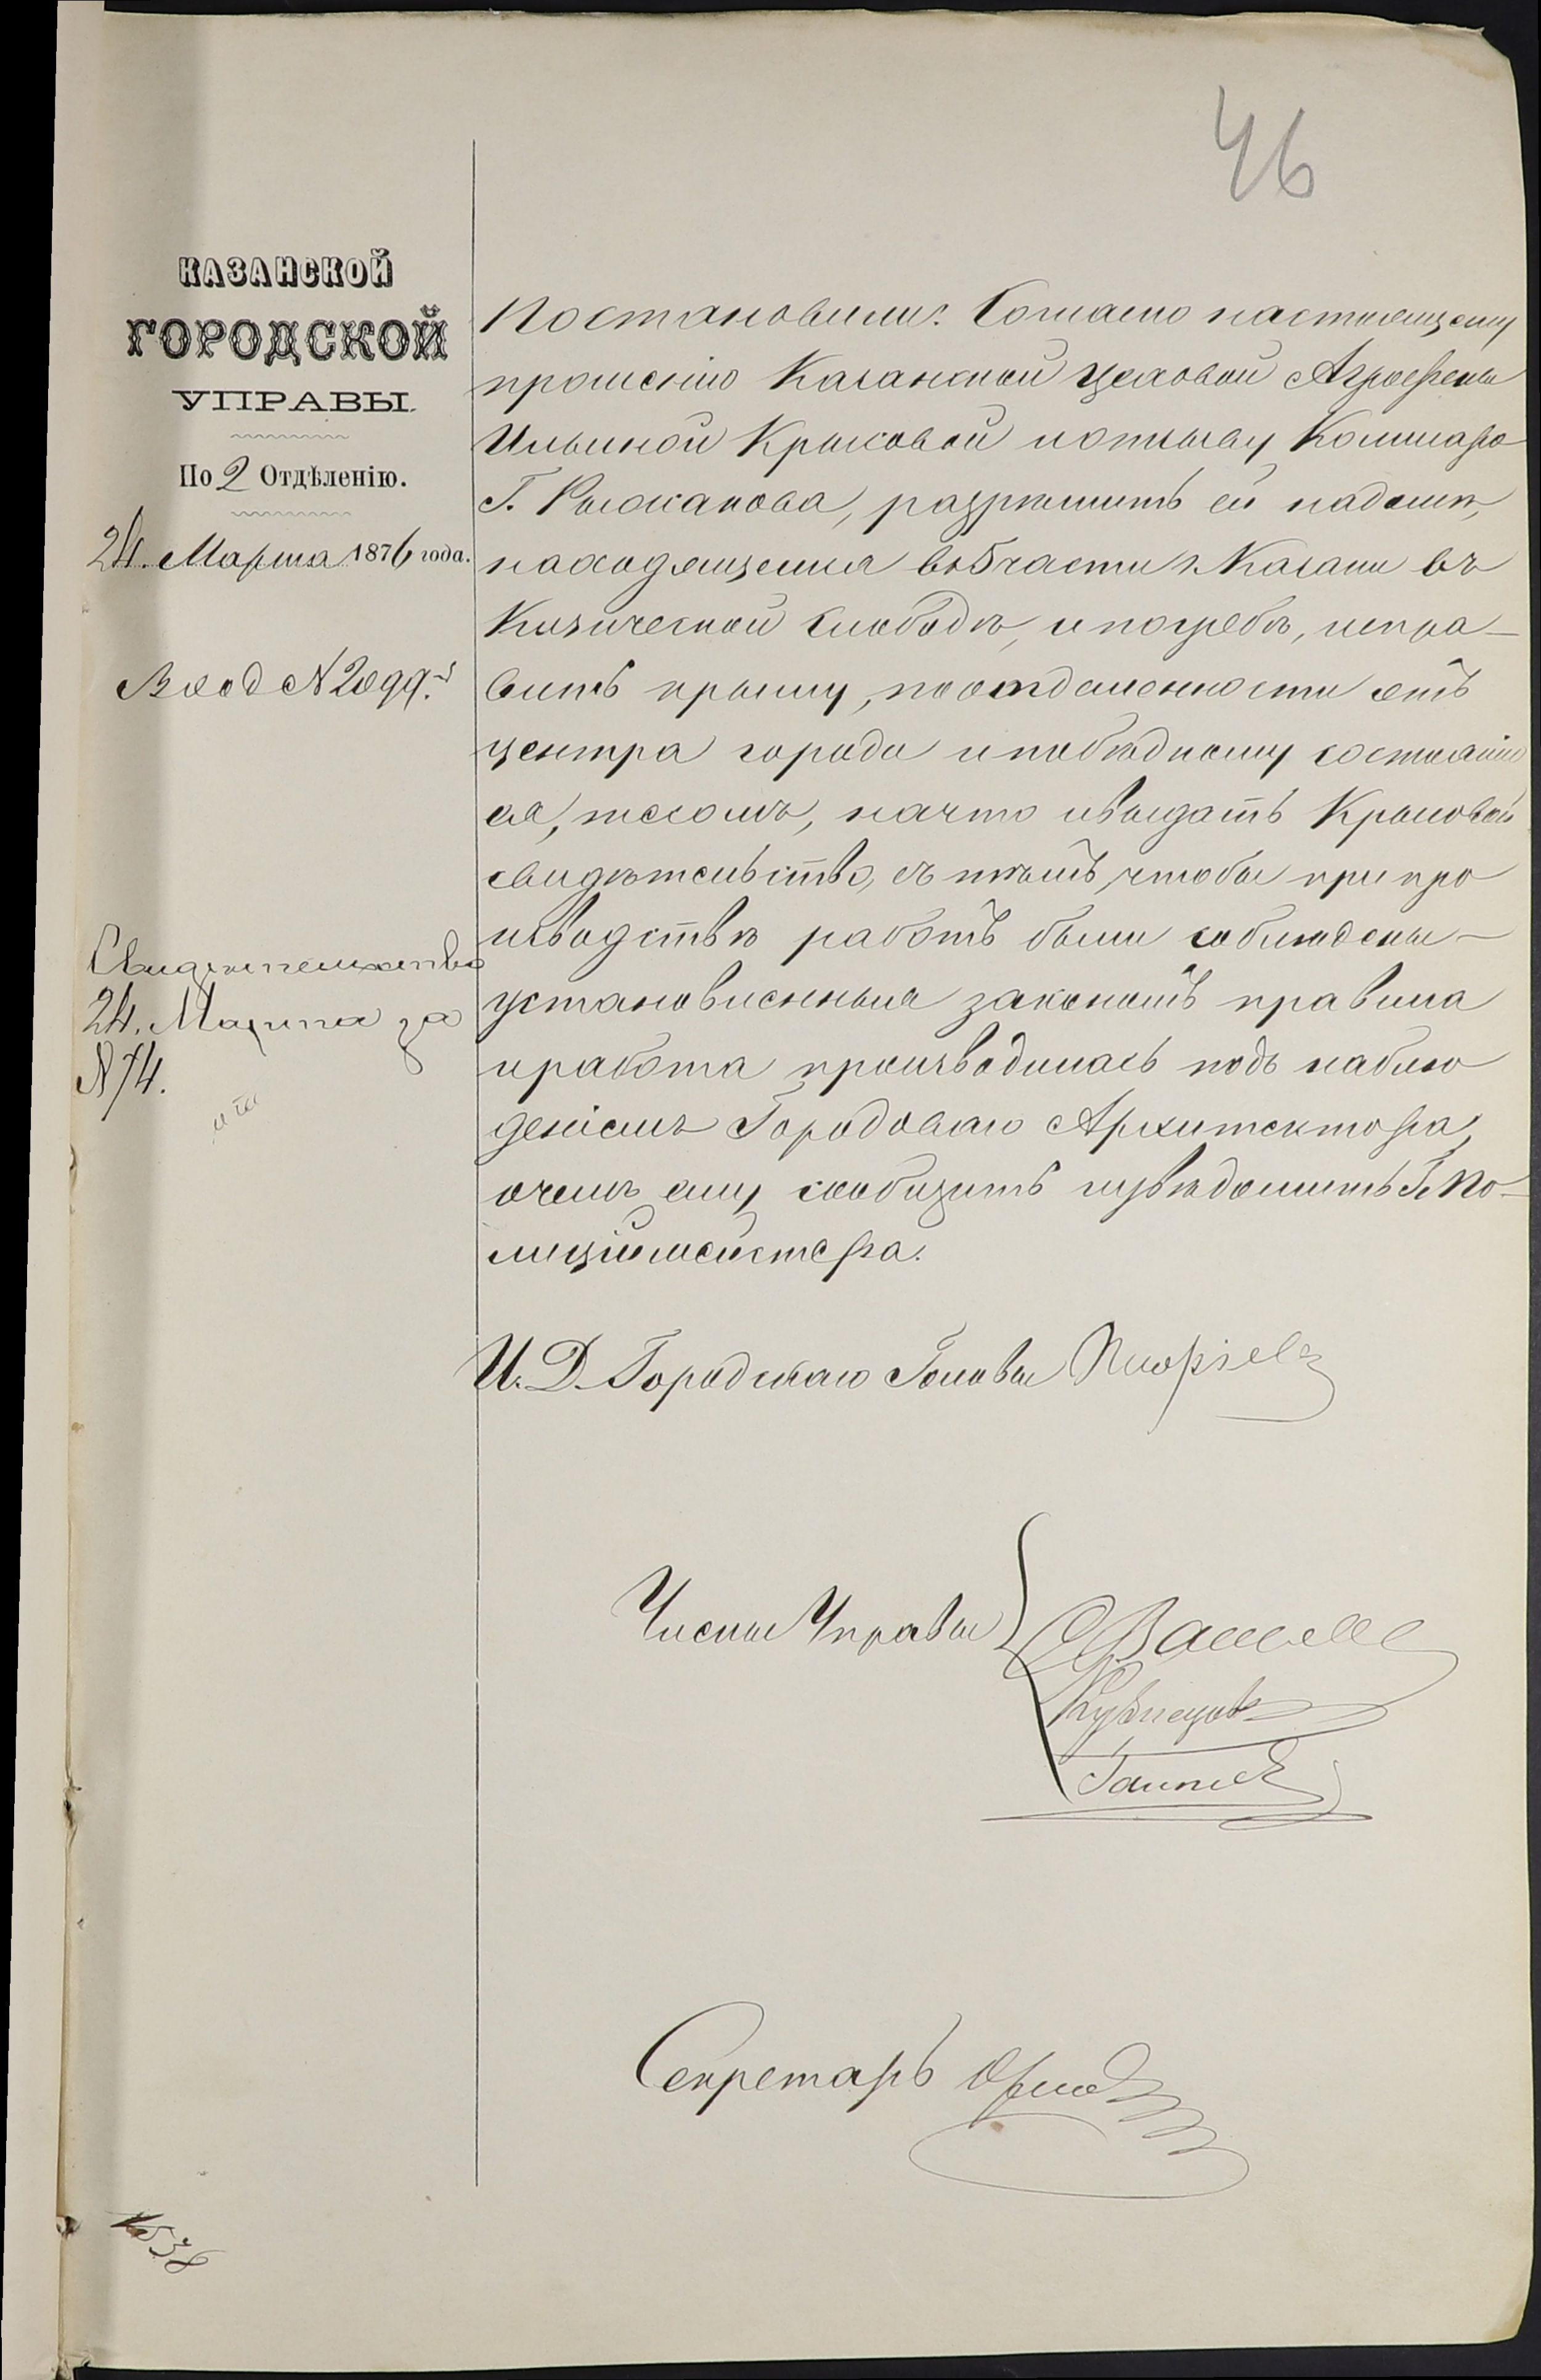 46
КАЗАНСКОЙ
ГОРОДСКОЙ
УПРАВЫ.
По 2 Отдѣленію.
24. Марта 1876 года.
Вход № 2099.
Свидетельство
24. Марта за
№ 74.
Постановили: Согласно настоящему
прошенію Казанской цеховой Агрофены
Ильиной Крысовой и отзыву Коммисара
Г. Рыжанова, разрешить ей на доме,
находящемся въ 5 части г. Казани въ
Кизической слободѣ, и погребѣ, испра-
вить крышу, по отдаленности отъ
центра города и по бѣдному состоянію
ея, тесомъ, на что и выдать Крысовой
свидѣтельство, съ тѣмъ, чтобы при про
изводствѣ работъ были соблюдены
установленныя закономъ правила
и работа производилась подъ наблю
деніемъ Городоваго Архитектора,
о чемъ ему сообщить и увѣдомить Г. По-
лиціймейстера.
И. Д. Городскаго Головы
Члены Управы
Кузнецовъ
Секретарь